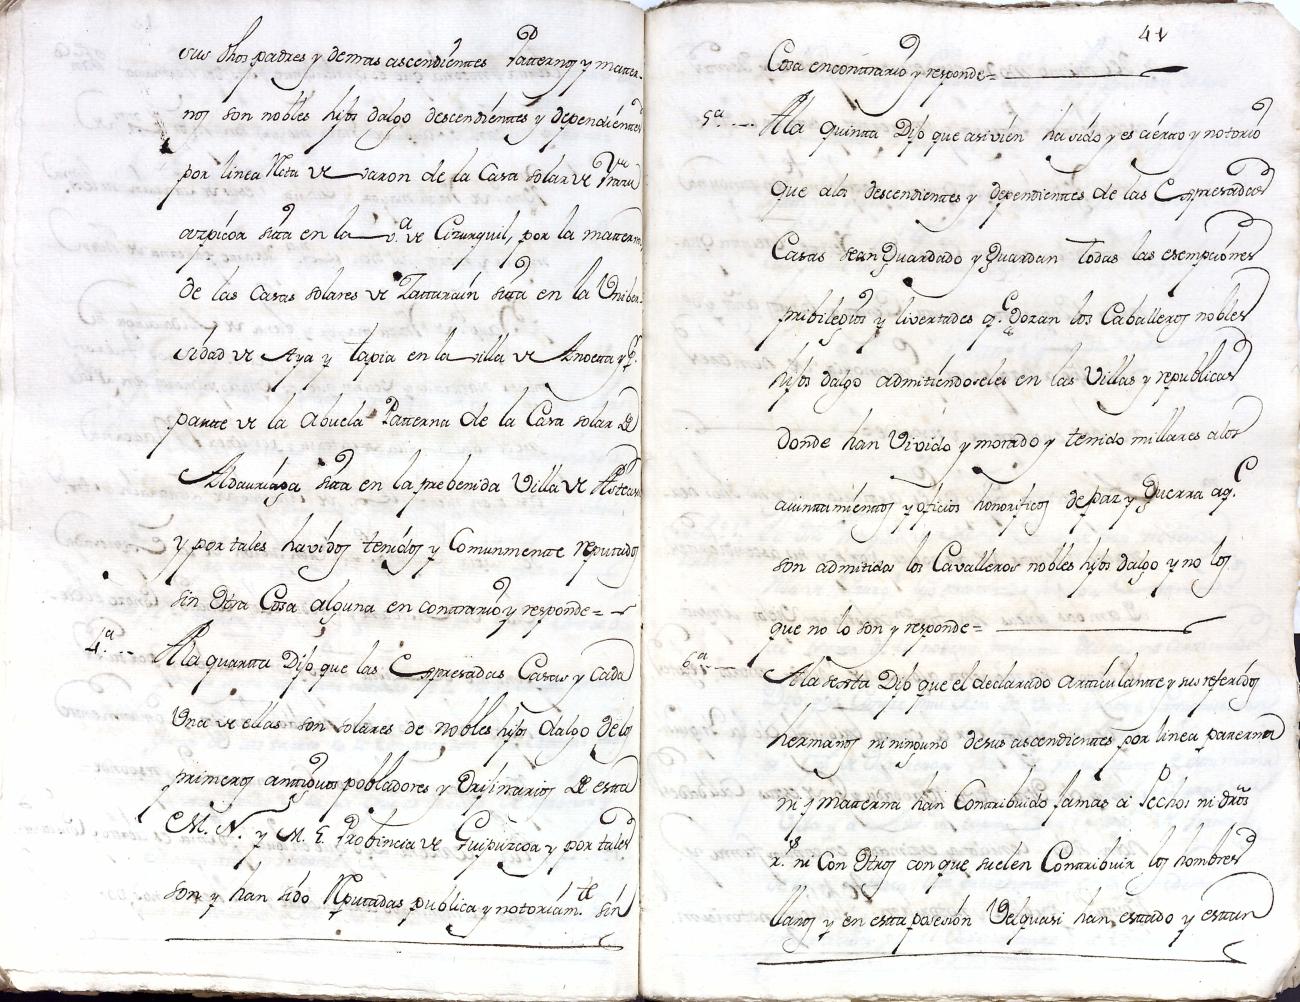 sus dhos padres y demas ascendientes Patternos y matter-
nos son nobles hijos dalgo descendientes y dependientes
por linea Recta de varon de la Casa solar de
azpicoa sita en la v.ª de Cizurquil, por la matterna
de las Casas solares de Zatturain sita en la Uniber-
sidad de Aya y tapia en la villa de Anoetta y p.r
partte de la Abuela Patterna de la Casa solar de
Aldauriaga sita en la prebenida Villa de Asteasu
y por tales havidos tenidos y Comunmentte reputados
sin Otra Cosa alguna en conttrario y responde=
4.ª Ala quartta Dijo que las Expresadas Casas y cada
Una de ellas son solares de nobles hijos dalgo de los
primeros anttiguos pobladores y Orijinarios de estta
M. N. y M. L. Probincia de Guipuzcoa y por tales
son y han sido Reputadas publica y notoriam.te sin
41
Cosa en conttrario y responde=
5.ª Ala quintta Dijo que asi vien ha sido y es cierto y notorio
que a los descendientes y dependientes de las Expresadas
Casas sean Guardado y Guardan todas las esempciones
pribilegios y livertades q.e Gozan los Caballeros nobles
hijos dalgo admitiendoseles en las Villas y republicas
donde han Vivido y morado y tenido millares alos
aiunttamienttos y oficios honorificos de paz y Guerra a q.e
son admitidos los Cavalleros nobles hijos dalgo y no los
que no lo son y responde=
6.ª Ala sextta Dijo que el declarado Articulante y sus referidos
hermanos ni ninguno de sus ascendientes por linea paterna
ni matterna han Conttribuido jamas a Pechos ni dros
r.s ni Con Otros con que suelen Conttribuir los hombres
llanos y en estta posesion Velquasi han esttado y esttan